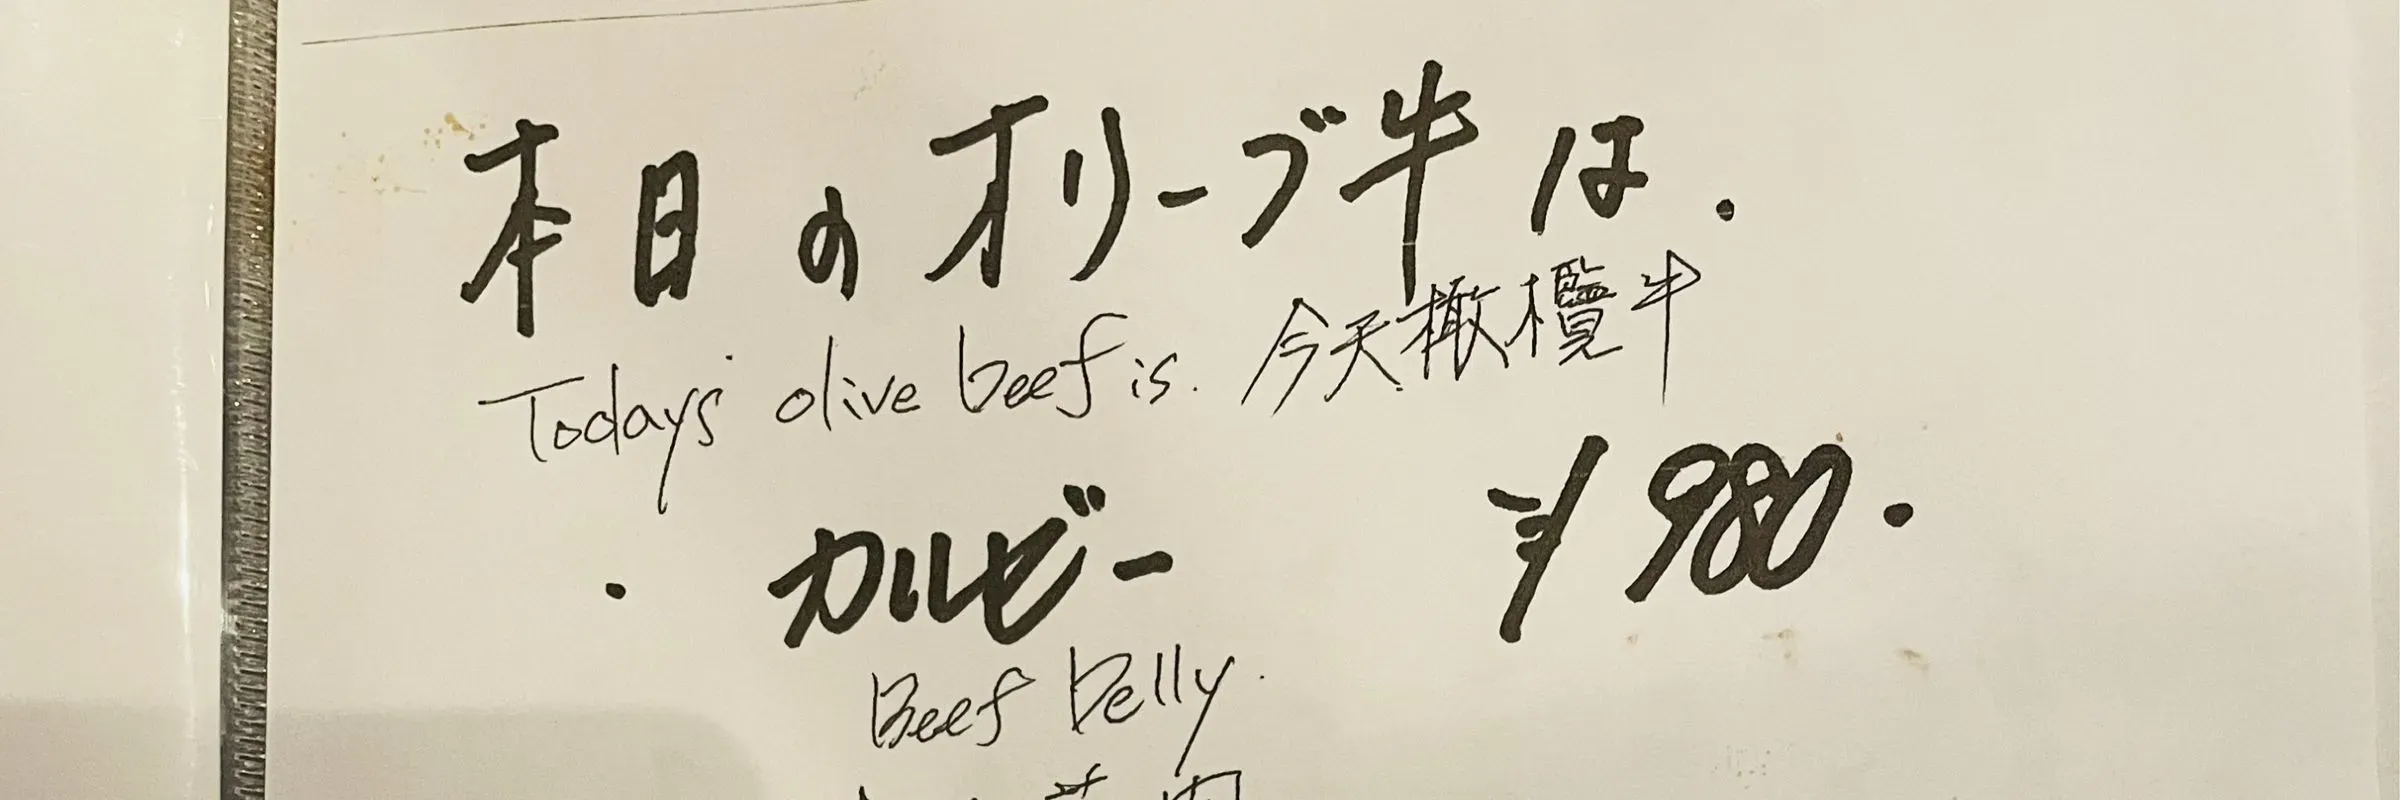 本日のオリーブ牛は.
Todays olive beef is. 今天橄欖牛
・カルビー ¥980.
Beef Belly.